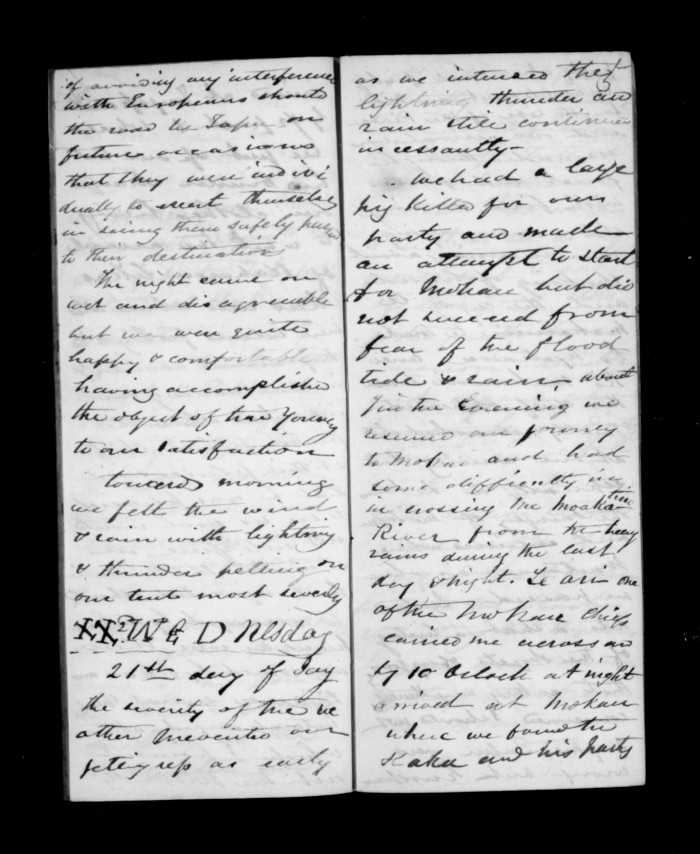 of avoiding any interference
with Europeans should
the road to Taipu on
future occasions
that they were indivi
dually to exert themselves
in seeing them safely passed
to their destination
The night came on
wet and disagreeable
but we were quite
happy & comfortable
having accomplishe
the object of the Journey
to our satisfaction
towards morning
we felt the wind
& rain with lightning
& thunder pelting on
our tents most severely
Wednesday
21st day of
the severity of the we
ather prevented our
geting up as early
as we intended the
lightning thunder and
rain still continued
incessantly-
we had a large
pig killed for our
party and made
an attempt to start
for Mokau but did
not succeed from
fear of the flood
tide & rain, about
in the Evening we
resumed our journey
to Mokau and had
some difficulty in
in crossing the
River from the heavy
rains during the last
day & night. one
of the Mokau Chiefs
carried me across and
by 10 Oclock at night
arrived at Mokau
where we found
and his party